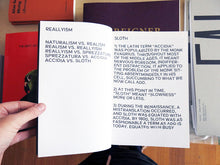 REALLYISM
NATURALISM VS. REALISM
REALISM VS. REALLYISM
REALLYISM VS. SPREZZATURA
SPREZZATURA VS. ACCIDIA
ACCIDIA VS. SLOTH
SLOTH
1) THE LATIN TERM "ACCIDIA"
WAS POPULARISED BY THE MONK
EVAGRIUS. THROUGHOUT MOST
OF THE MIDDLE AGES, IT MEANT
NERVOUS BOREDOM, INDIFFER-
ENT DISTRACTION. IT APPLIED TO
THE PROBLEM OF THE MONK, SIT-
TING ABSENTMINDEDLY IN HIS
CELL, SUCCUMBING TO WHAT WE
NOW CALL ADD.
2) AT THIS POINT IN TIME,
"SLOTH" MEANT "SLOWNESS"
MORE OR LESS.
3) DURING THE RENAISSANCE, A
MISTRANSLATION OCCURRED:
SLOTH WAS EQUATED WITH
ACCIDIA. BY NOW, SLOTH WAS AS
FASHIONABLE A TERM AS ADD IS
TODAY. EQUATED WITH BUSY